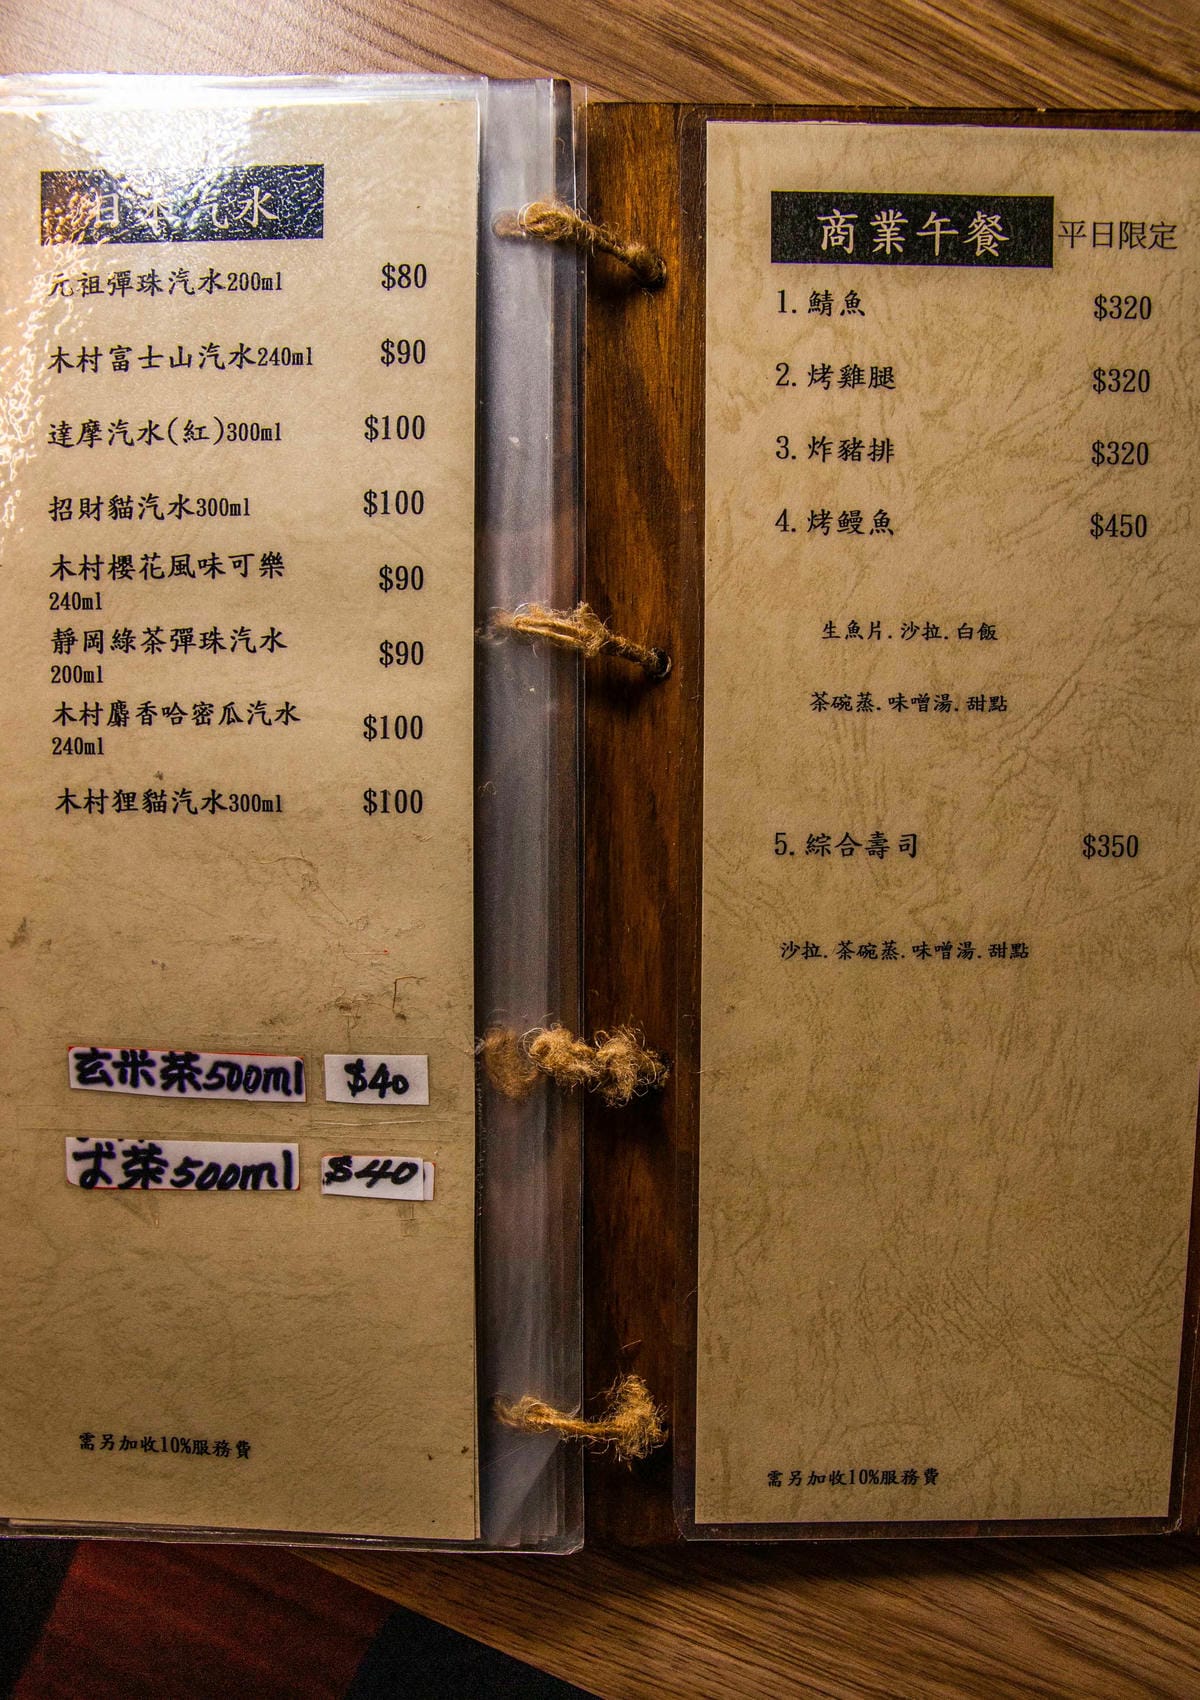 日本汽水
元祖彈珠汽水200ml $80
木村富士山汽水240ml $90
達摩汽水(紅)300ml $100
招財貓汽水300ml $100
木村櫻花風味可樂 $90
240ml
靜岡綠茶彈珠汽水 $90
200ml
木村麝香哈密瓜汽水 $100
240ml
木村狸貓汽水300ml $100
玄米茶500ml $40
茶500ml $40
需另加收10%服務費
商業午餐 平日限定
1. 鯖魚 $320
2. 烤雞腿 $320
3. 炸豬排 $320
4. 烤鰻魚 $450
生魚片.沙拉.白飯
茶碗蒸.味噌湯.甜點
5. 綜合壽司 $350
沙拉.茶碗蒸.味噌湯.甜點
需另加收10%服務費